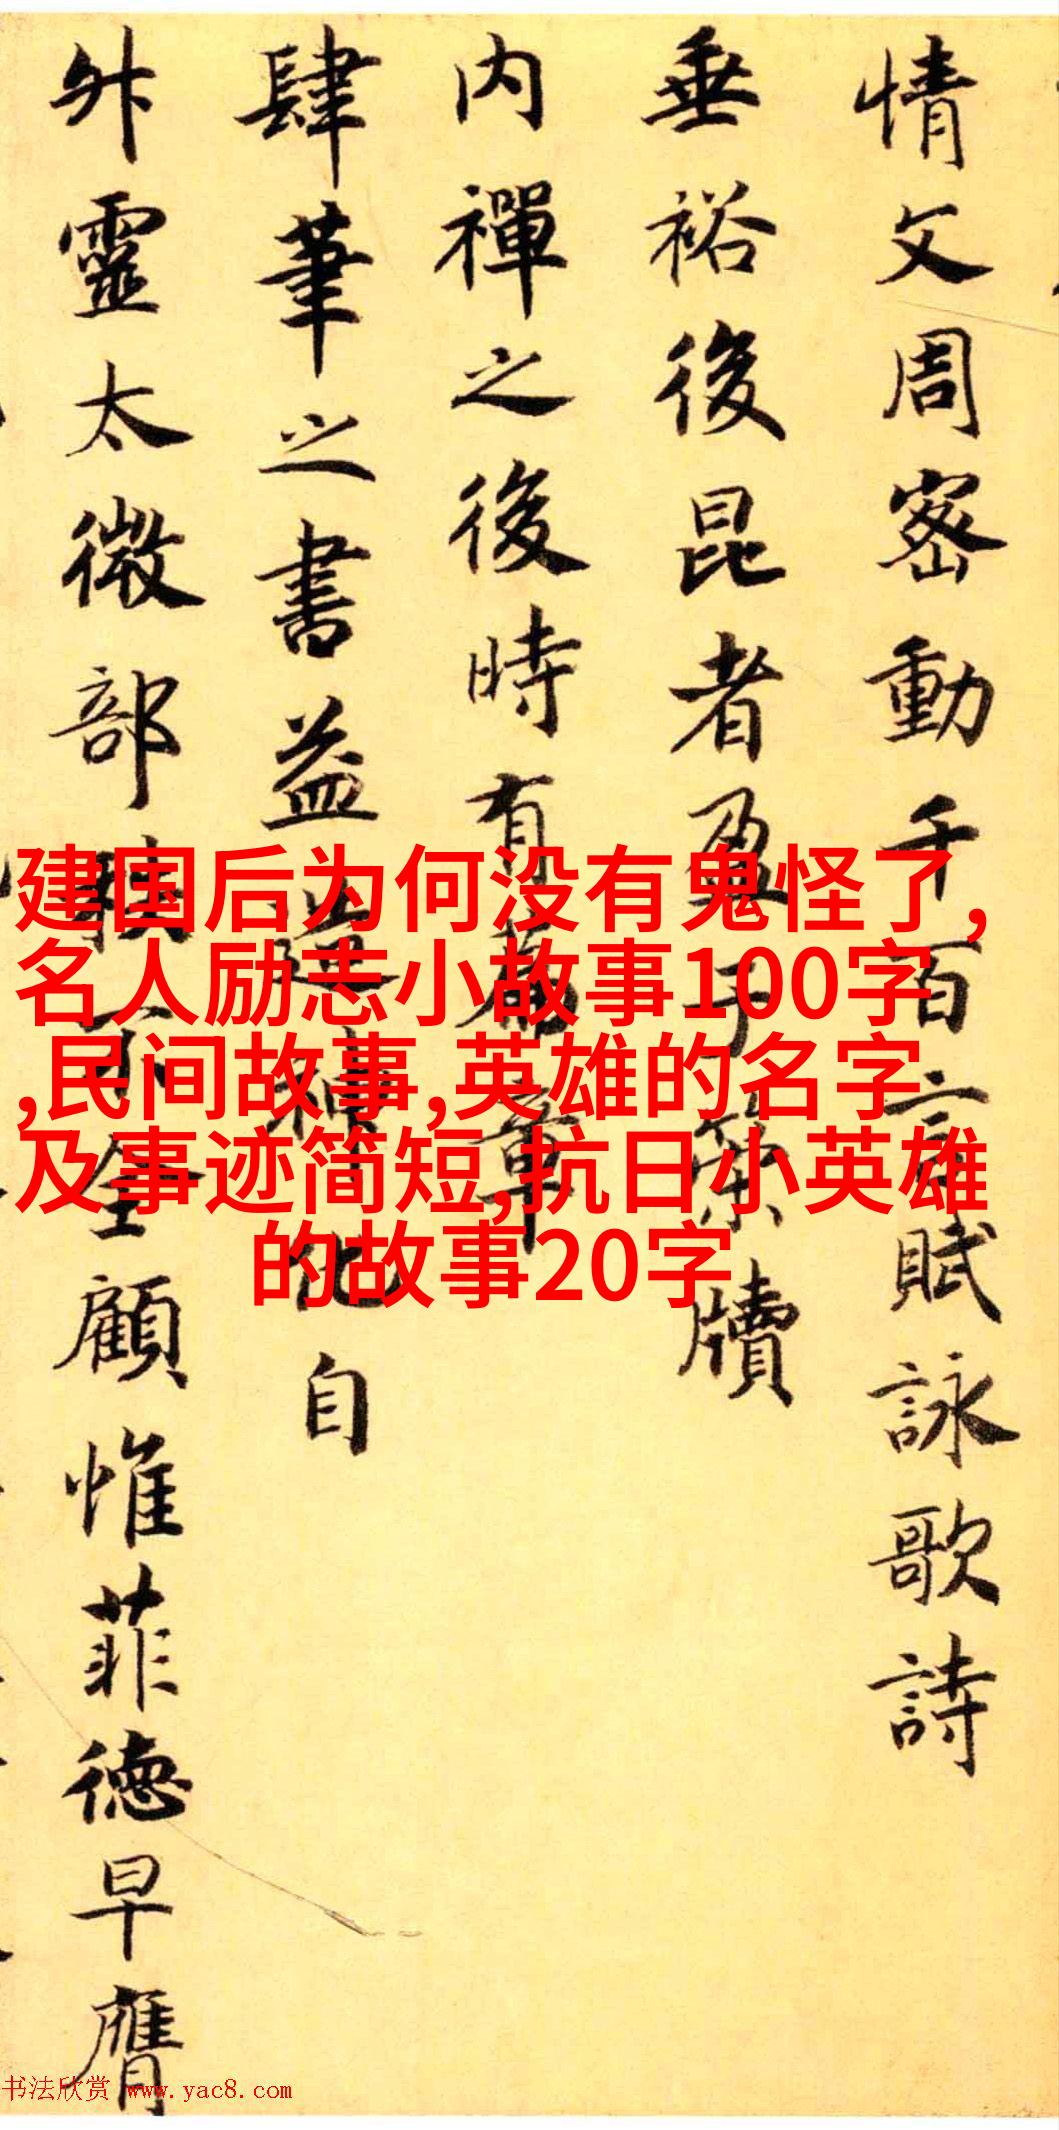 情文周密動千百言賦詠歌詩
垂裕後昆者盈于緗牘
内禪之後時有篇章
肆筆之書益造神化自
升靈太微部帙不全顧惟菲德早膺
建国后为何没有鬼怪了,
名人励志小故事100字
,民间故事,英雄的名字
及事迹简短,抗日小英雄
的故事20字
书法欣赏 www.yac8.com